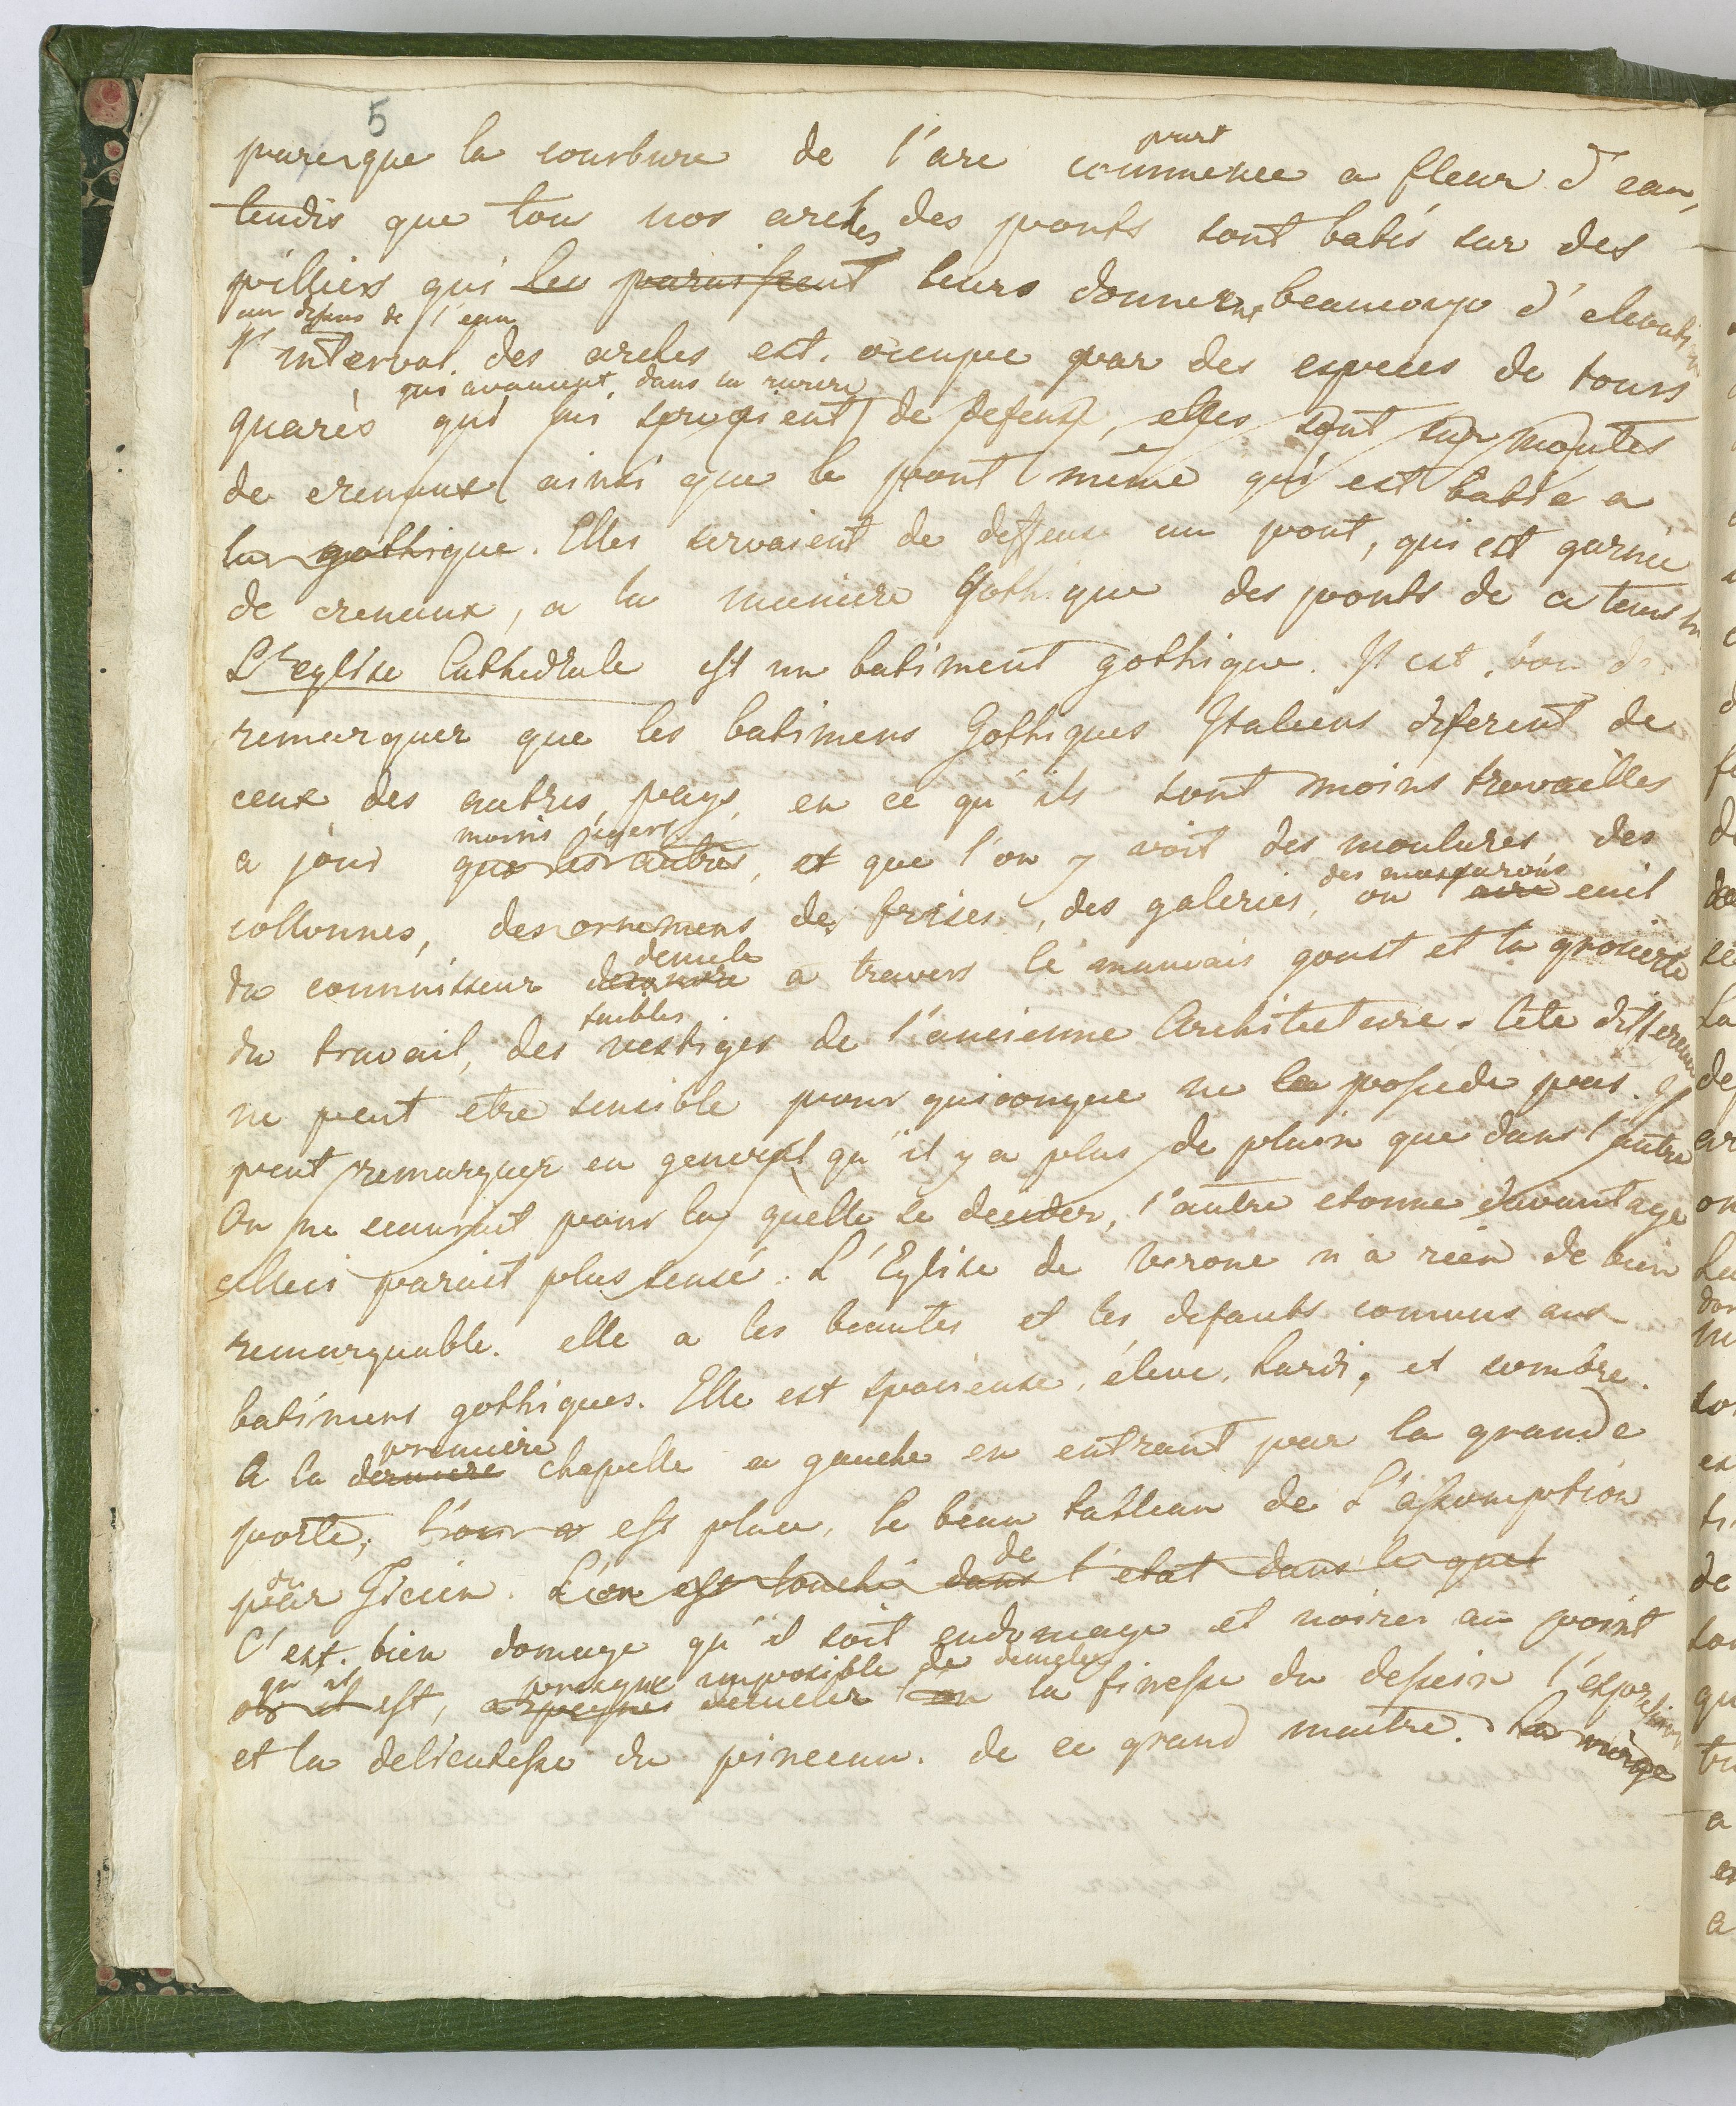 5
parceque la courbure de l'arc part
commence a fleur d'eau,
tendis que tou nos arches des ponts sont batis sur des
pilliers qui les paraissent leurs donnent beaucoup d'elevation
au dessus de l'eau
l'interval des arches est occupee par des especes de tours
qui avancent dans la riviere
quarés qui lui servoient de defense, elles sont surmontés
de crenaux ainsi que le pont même qui est batie a
la gothique. Elles servaient de deffense au pont, qui est garnie
de crenaux, a la maniere Gothique des ponts de ce tems la
L'eglise Cathedrale est un batiment gothique. Il est bon de
remarquer que les batimens Gothiques Italiens diferent de
ceux des autres pays, en ce qu'ils sont moins travailles
moins legers
a jour que les autres, et que l'on y voit des moulures des
des mascarons
collonnes, des ornemens des frises, des galeries, ou l'oeuil
demele
du connaisseur a travers le mauvais goust et la grosierte
faibles
du travail, des vestiges de l'ancienne Architecture. Cete difference
ne peut etre sensible pour quiconque ne la possede pas. Il
peut remarquer en general qu'il y a plus de plein que dans l'autre
On ne scaurait pour la quelle se decider, l'autre etonne davantage
celleci parait plus sensé. L'Eglise de Verone n'a rien de bien
remarquable. elle a les beautes et les defauts comuns aux
batimens gothiques. Elle est spacieuse, éleve, hardi, et sombre.
premiere
A la derniere chapelle a gauche en entrant par la grande
porte, est place, le beau tableau de L'assomption
de
par Ticien. L'on est touché dans l'etat dans le quel
de
C'est bien domage qu'il soit endomage et noirci au point
qu'il presque impossible de demeler
ou il est, a peine demeler la finesse du dessein l'expression
et la delicatesse du pinceau de ce grand maitre. La vierge